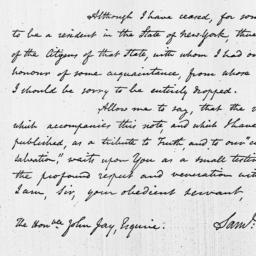 Although I have ceased, for som
to be a resident in the State of New York, there
of the Citizens of that State, with whom I had
honour of some acquaintance, from whose
I should be sorry to be entirely dropped.
Allow me to say, that the
which accompanies this note and which I have
published, as a tribute to Truth and to our
Salvation," waits upon You as a small
the profound respect and veneration
I am, Sir, your obedient servant,
The Honble John Jay, Esquire. Saml.